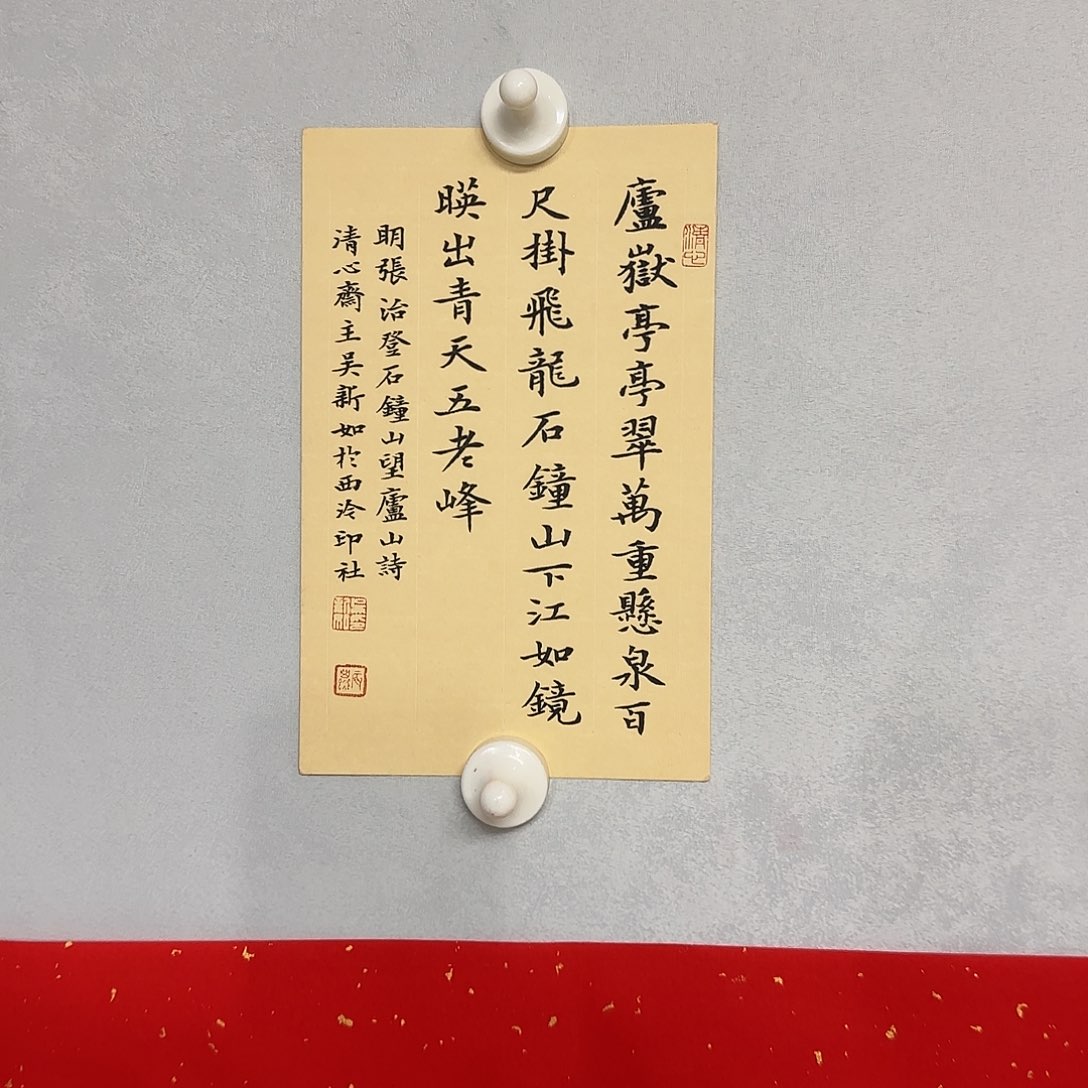 廬嶽亭亭翠萬重懸泉百
尺掛飛龍石鐘山下江如鏡
暎出青天五老峰
明張治登石鐘山望廬山詩
清心齋主吴新如於西泠印社
清心